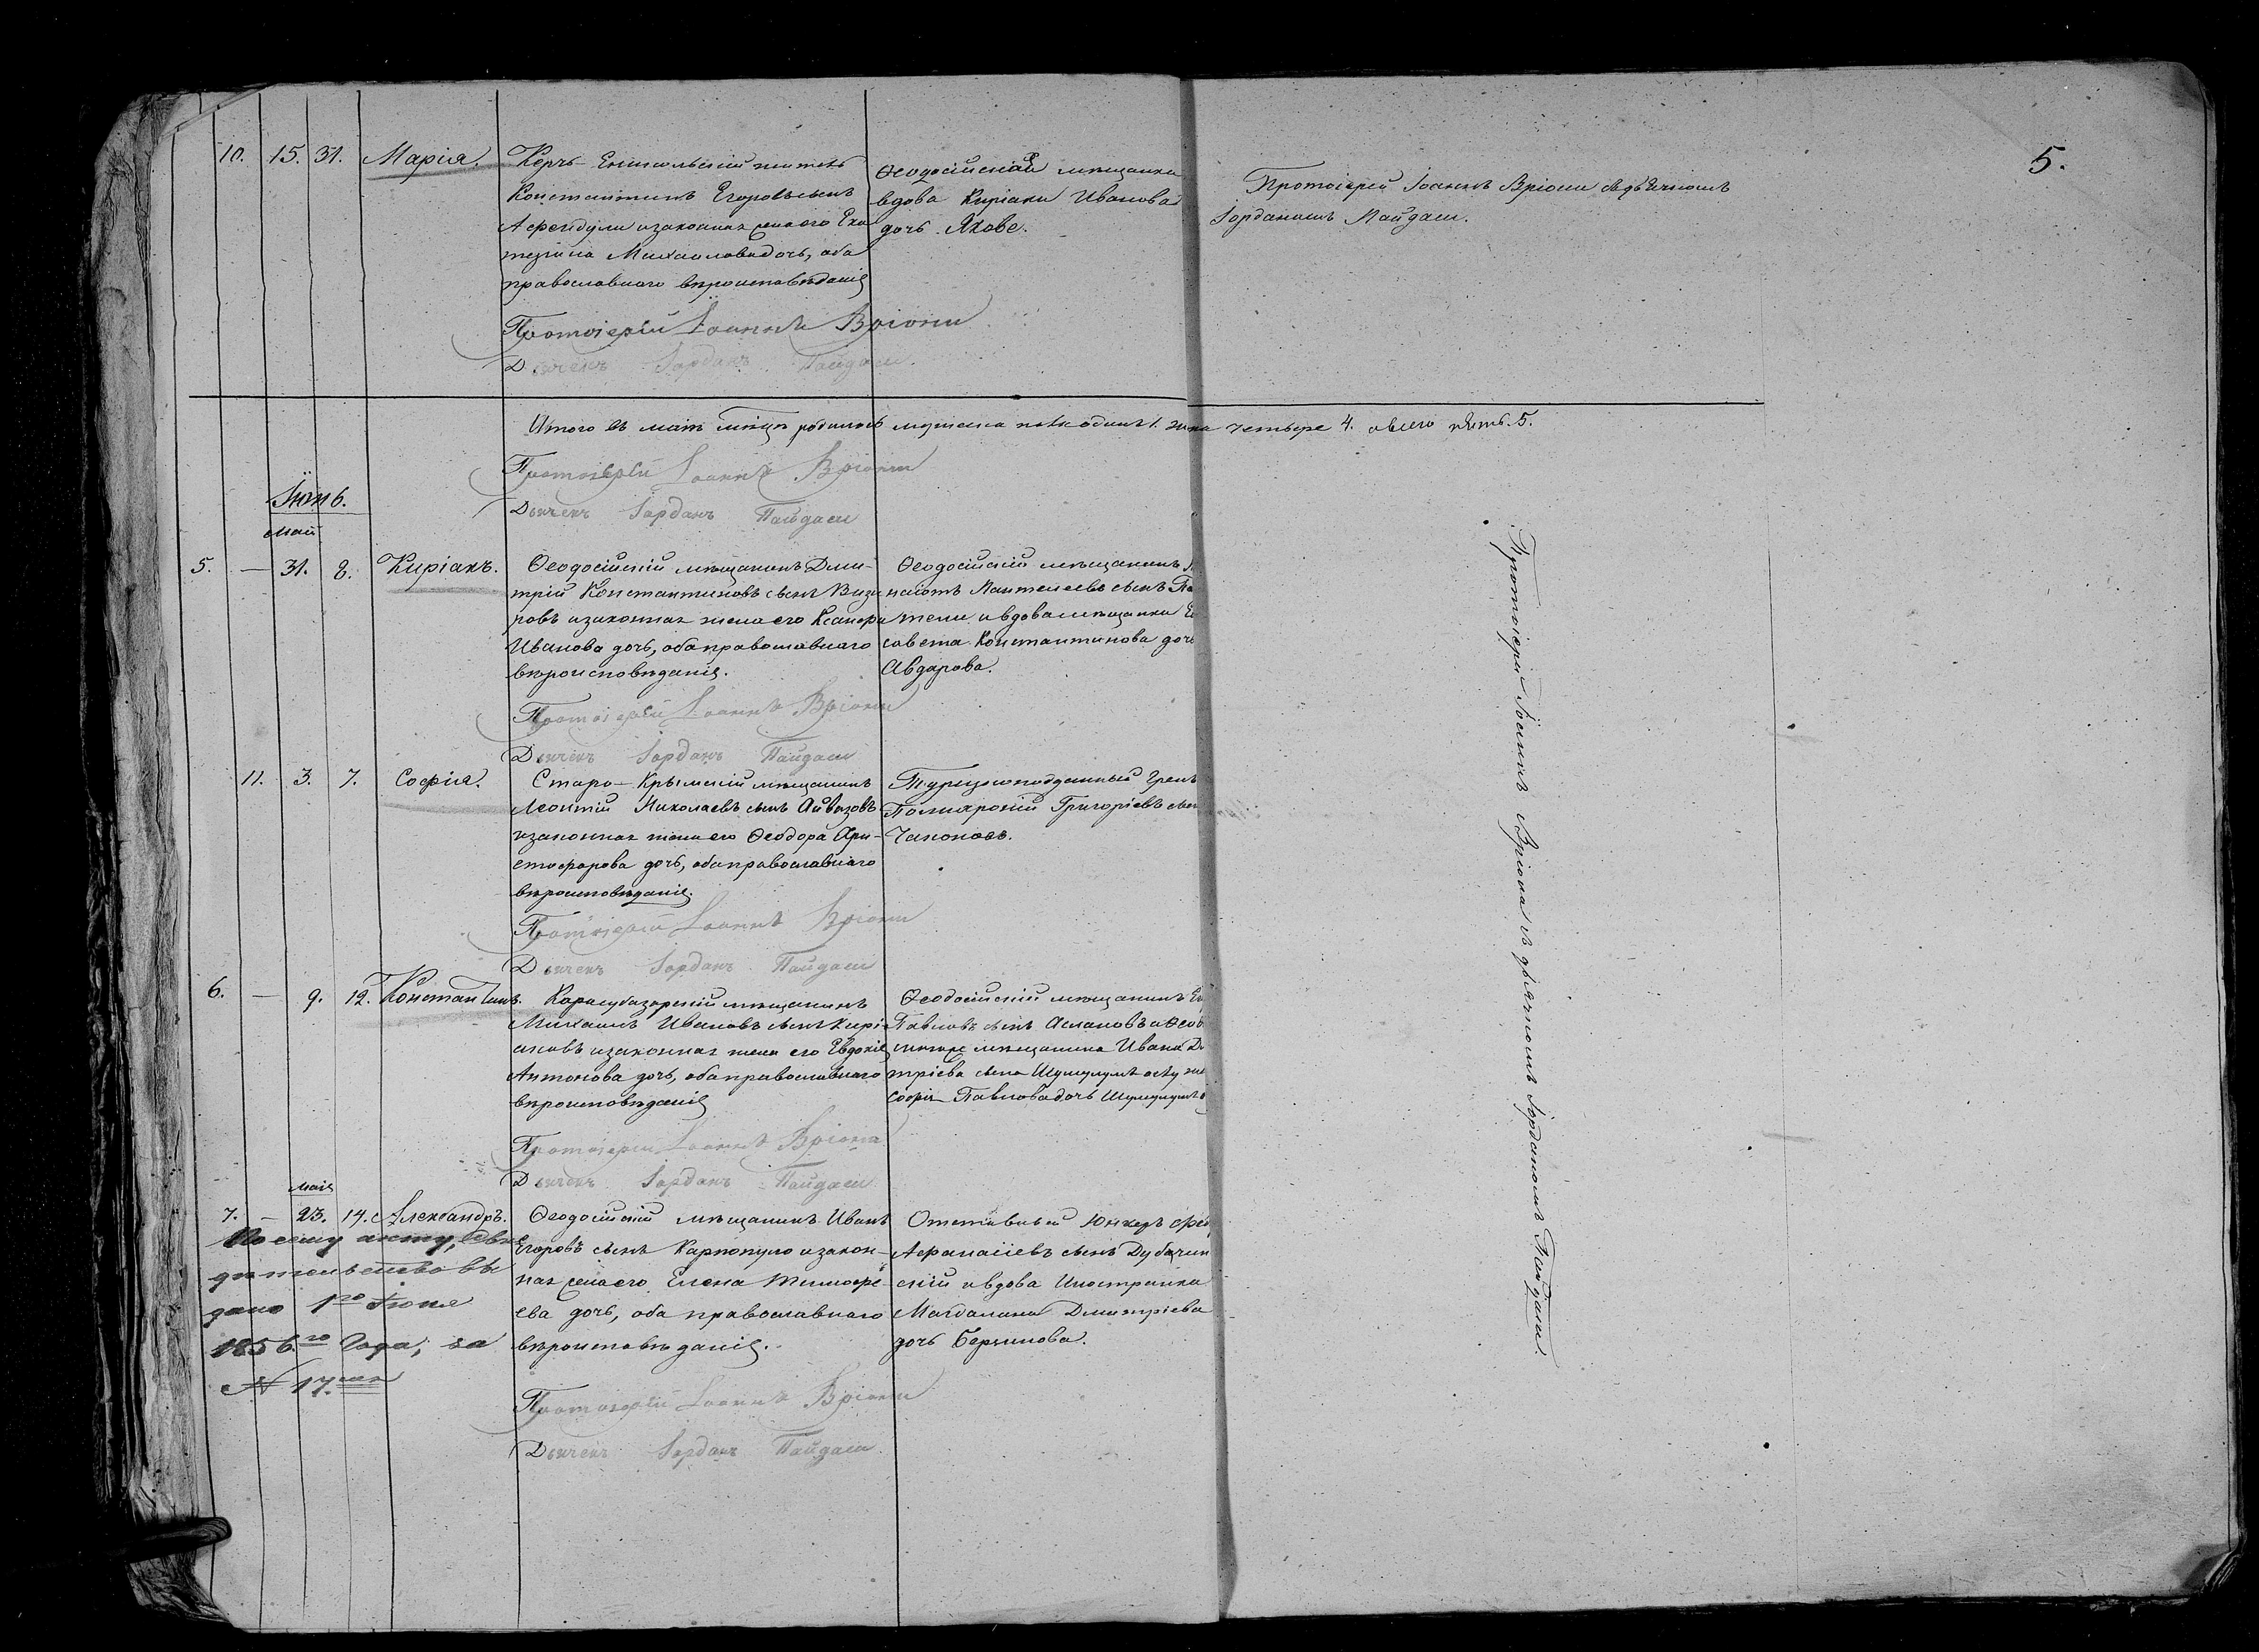 5.
10. 15. 31. Марія. Керчь-Еникольскій житель
Константинъ Егоровъ сынъ
Афендули и законная жена его Ека
терина Михаилова дочь, оба
православнаго вѣроисповѣданія
Ѳеодосійская мѣщанка
вдова Киріаки Иванова
дочь Якове.
Протоіерей Іоаннъ Вріони съ дьячкомъ
Іорданомъ Пайдаси.
Протоіерей Іоаннъ Вріони
Дьячекъ Іорданъ Пайдаси.
Итого въ маѣ мѣсяцѣ родилось мужеска пола одинъ 1. женска четыре 4. а всего пять. 5.
Протоіерей Іоаннъ Вріони
Дьячекъ Іорданъ Пайдаси
Іюнь.
Май
5. — 31. 8. Киріакъ. Ѳеодосійскій мѣщанинъ Дми-
трій Константиновъ сынъ Визи
ровъ и законная жена его Ксанфи
Иванова дочь, оба православнаго
вѣроисповѣданія.
Ѳеодосійскій мѣщанинъ
наіотъ Пантелеевъ сынъ
тели и вдова мѣщанка
савета Константинова дочь
Авдарова.
Протоіерей Іоаннъ Вріони
Дьячекъ Іорданъ Пайдаси
11. 3. 7. Софія. Старо-Крымскій мѣщанинъ
Леонтій Николаевъ сынъ Айвазовъ
и законная жена его Ѳеодора Хри-
стофорова дочь, оба православнаго
вѣроисповѣданія.
Турецкоподданный Грекъ
Поликарпій Григоріевъ сынъ
Чапоновъ.
Протоіерей Іоаннъ Вріони
Дьячекъ Іорданъ Пайдаси
6. — 9. 12. Константинъ. Карасубазарскій мѣщанинъ
Михаилъ Ивановъ сынъ Кирі-
аковъ и законная жена его Евдокія
Антонова дочь, оба православнаго
вѣроисповѣданія
Ѳеодосійскій мѣщанинъ
Павловъ сынъ Аслановъ и Ѳеод
мѣщанина Ивана
тріева сына
Софія Павлова дочь
Протоіерей Іоаннъ Вріони
Дьячекъ Іорданъ Пайдаси
Мая
7. — 23. 14. Александръ. Ѳеодосійскій мѣщанинъ Иванъ
Егоровъ сынъ Карпопуло и закон-
ная жена его Елена Тимофе-
ева дочь, оба православнаго
вѣроисповѣданія.
Отставной Юнкеръ
Афанасіевъ сынъ Дубачин
скій и вдова Иностранка
Магдалина Дмитріева
дочь
По сему акту, Сви
дѣтельство вы
дано 1го Іюня
1856го Года, за
N 17.
Протоіерей Іоаннъ Вріони
Дьячекъ Іорданъ Пайдаси.
Протоіерей Іоаннъ Вріони съ дьячкомъ Іорданомъ Пайдаси.